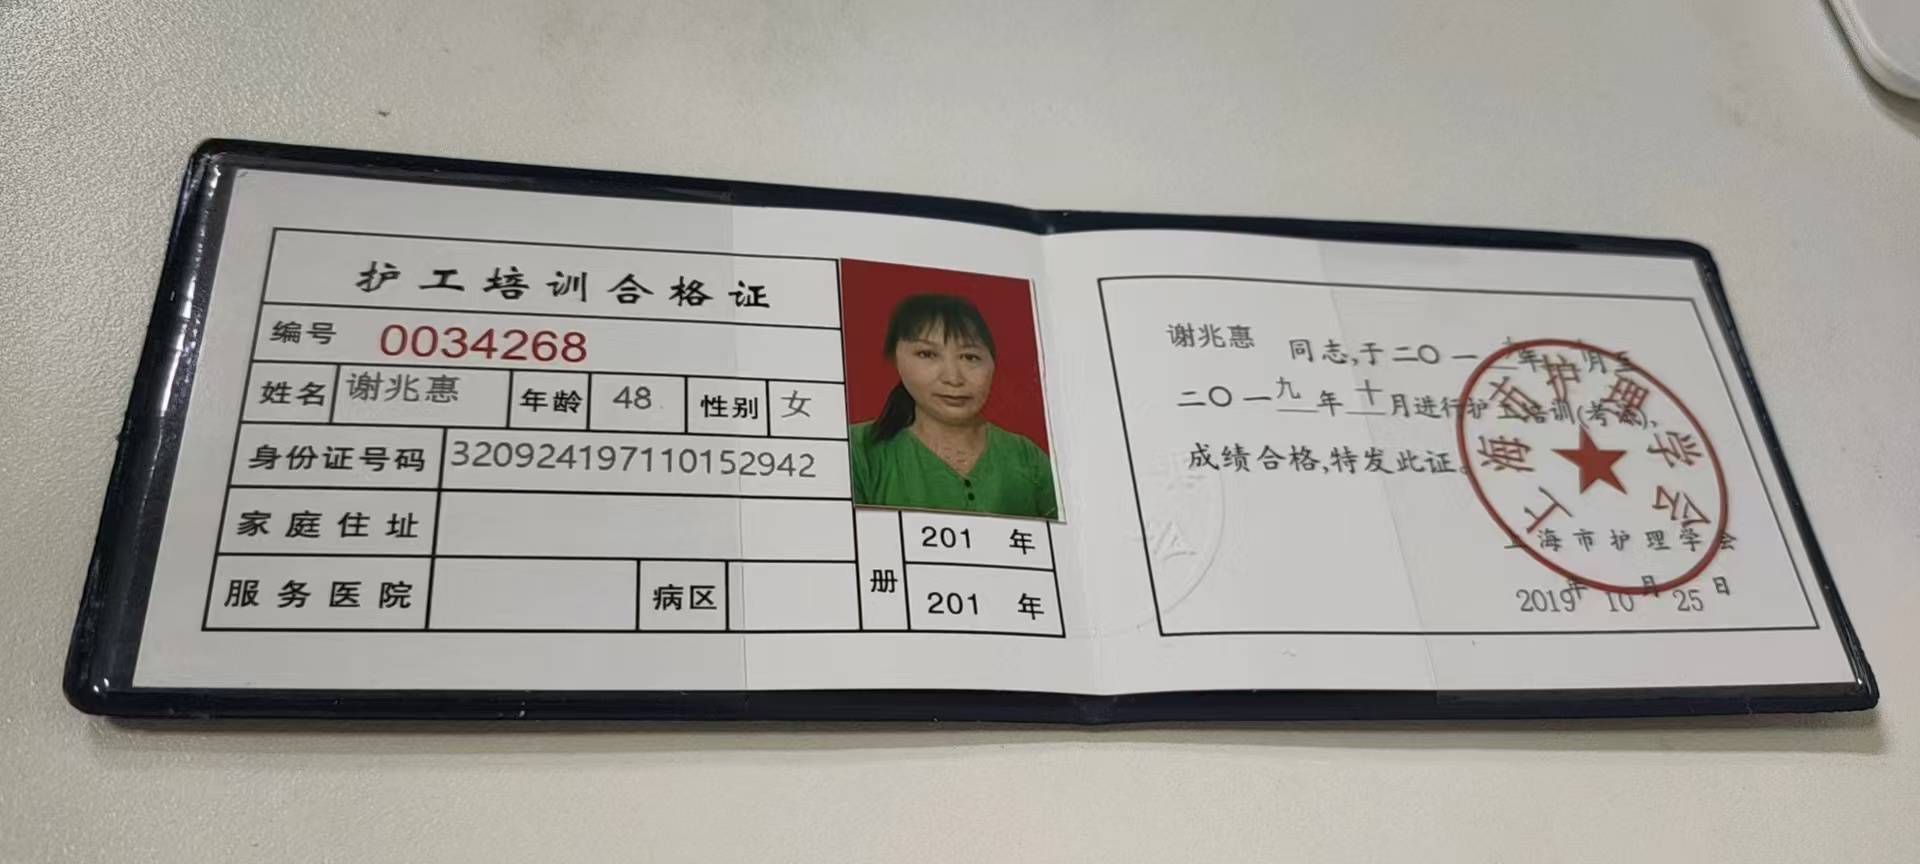 护工培训合格证
编号 0034268
姓名 谢兆惠 年龄 48 性别 女
身份证号码 320924197110152942
家庭住址
服务医院 病区
册 201 年
201 年
谢兆惠 同志,于二〇一 年 月至
二〇一九年十月进行护工培训(考试),
成绩合格,特发此证。
上海市护理学会
上海市护理学会
2019年10月25日